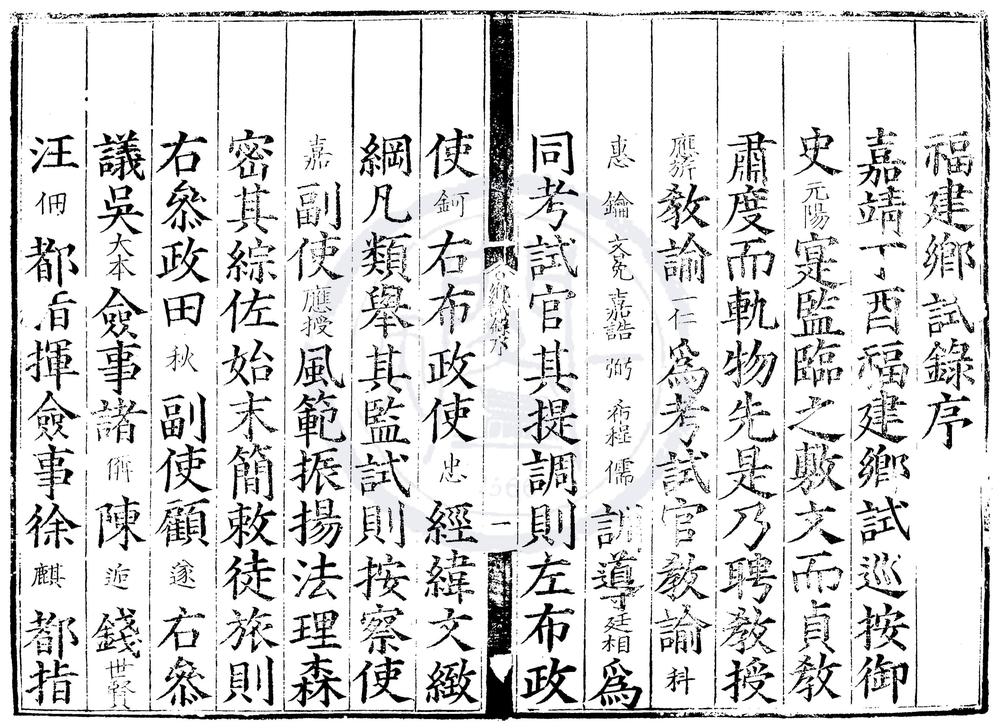 福建鄉試錄序
嘉靖丁酉福建鄉試巡按御
史元陽寔監臨之敷文而貞敎
肅度而軌物先是乃聘敎授
應旂敎諭一仁爲考試官敎諭科
惠鑰文冕嘉誥弼程儒訓導廷相爲
同考試官其提調則左布政
使鈳右布政使忠經緯文緻
綱凡類舉其監試則按察使
嘉副使應授風範振揚法理森
密其綜佐始末簡敕徒旅則
右叅政田秋副使顧遂右叅
議吳大本僉事諸偁陳逅錢世賢
汪佃都指揮僉事徐麒都指
一